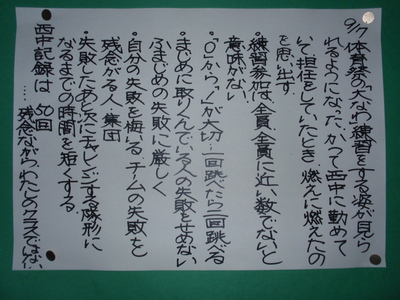 9/7 体育祭の「大なわ」練習をする姿が見ら
れるようになった。かつて西中に勤めて
いて担任をしていたとき、燃えに燃えたの
を思い出す
・練習参加は、全員、全員に近い数でないと
意味がない!
・「0」から「1」が大切…一回跳べたら二回跳べる
・まじめに取りくんでいる人の失敗をせめない
ふまじめの失敗に厳しく
・自分の失敗を悔いる・チームの失敗を
残念がる人、集団
・失敗したあと次にチャレンジする隊形に
なるまでの時間を短くする
西中記録は 50回
…残念ながらわたしのクラスではない